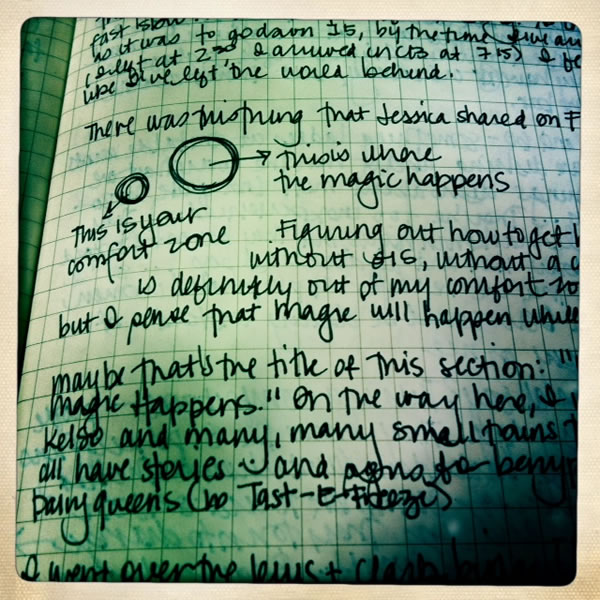 fast slow
as it was to go down I5, by the time I've
(I left at 230 I arrived in CB at 715) I fe
like I've left the world behind.
There was this thing that Jessica shared on F
This is where
the magic happens
This is your
comfort zone
Figuring out how to get
without I5, without a
is definitely out of my comfort zo
but I pense that magic will happen while
maybe that's the title of this section: "
magic Happens." On the way here, I
Kelso and many, many small towns t
all have stories and
Dairy queens (no Tast-E-Freezs)
I went over the +